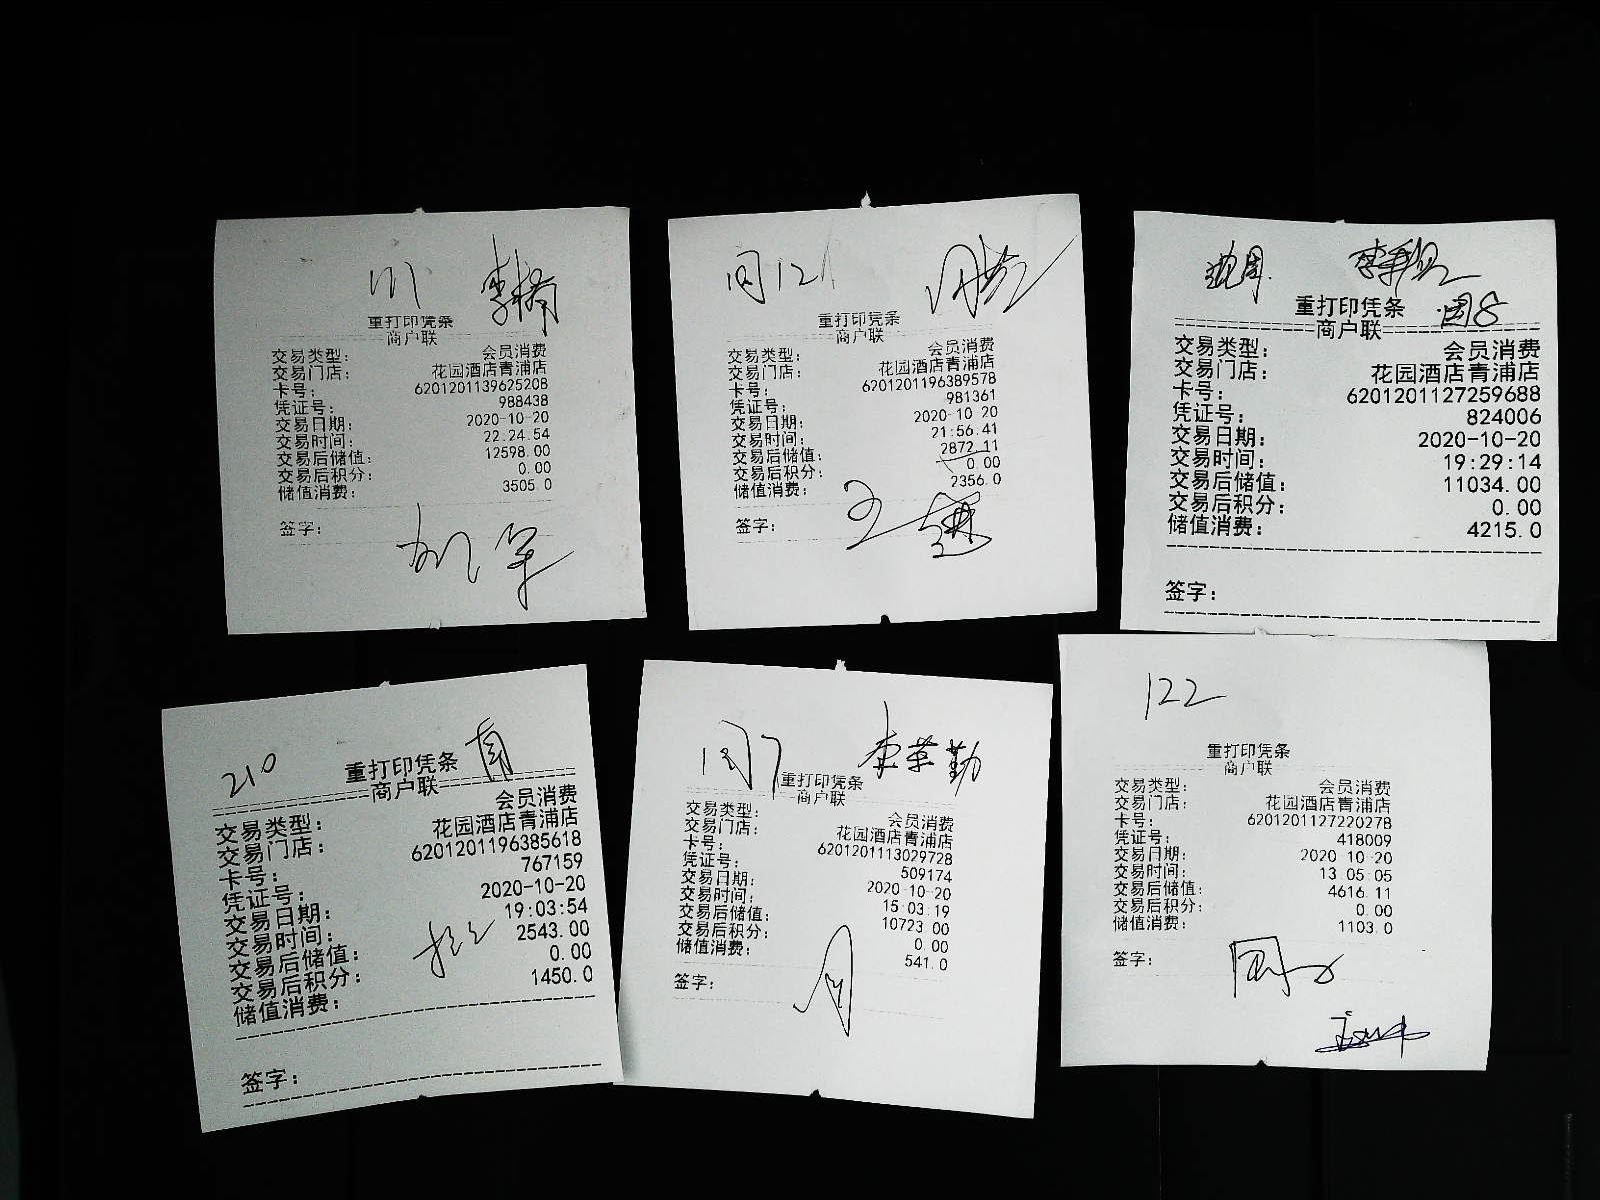 111 李楠
重打印凭条
商户联
交易类型: 会员消费
交易门店: 花园酒店青浦店
卡号: 6201201139625208
凭证号: 988438
交易日期: 2020-10-20
交易时间: 22:24:54
交易后储值: 12598.00
交易后积分: 0.00
储值消费: 3505.0
签字:
闵121
重打印凭条
商户联
交易类型: 会员消费
交易门店: 花园酒店青浦店
卡号: 6201201196389578
凭证号: 981361
交易日期: 2020-10-20
交易时间: 21:56:41
交易后储值: 2872.11
交易后积分: 0.00
储值消费: 2356.0
签字:
重打印凭条
商户联
交易类型: 会员消费
交易门店: 花园酒店青浦店
卡号: 6201201127259688
凭证号: 824006
交易日期: 2020-10-20
交易时间: 19:29:14
交易后储值: 11034.00
交易后积分: 0.00
储值消费: 4215.0
签字:
210
重打印凭条
商户联
交易类型: 会员消费
交易门店: 花园酒店青浦店
卡号: 6201201196385618
凭证号: 767159
交易日期: 2020-10-20
交易时间: 19:03:54
交易后储值: 2543.00
交易后积分: 0.00
储值消费: 1450.0
签字:
闵7 李荣勤
重打印凭条
商户联
交易类型: 会员消费
交易门店: 花园酒店青浦店
卡号: 6201201113029728
凭证号: 509174
交易日期: 2020-10-20
交易时间: 15:03:19
交易后储值: 10723.00
交易后积分: 0.00
储值消费: 541.0
签字:
122
重打印凭条
商户联
交易类型: 会员消费
交易门店: 花园酒店青浦店
卡号: 6201201127220278
凭证号: 418009
交易日期: 2020-10-20
交易时间: 13:05:05
交易后储值: 4616.11
交易后积分: 0.00
储值消费: 1103.0
签字: